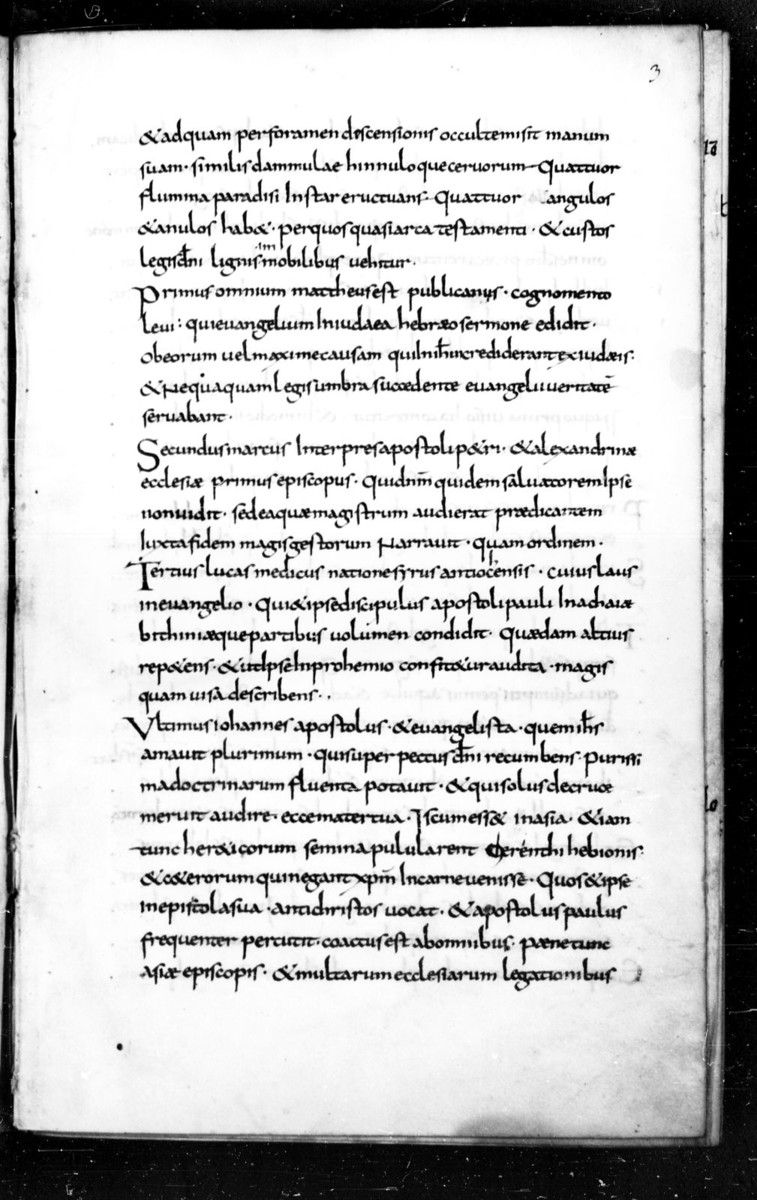 3
& adquam per foramen descensionis occulte misit manum
suam · similis dammulae hinnuloque ceruorum · Quattuor
flumina paradisi Instar eructuans · Quattuor angulos
& anulos hab& · per quos quasi arca testamenti · & custos
legis dn̄i lignis Immobilibus vehitur ·
Primus omnium mattheus est publicanus · cognomento
leui : qui euangelium In iudaea hebræo sermone edidit ·
ob eorum uel maxime causam qui In ih̄m crediderant ex iudæis ·
& Nequaquam legis umbra succedente euangelii veritatē
seruabant ·
Secundus marcus Interpres apostoli p&ri · & alexandrinæ
ecclesiæ primus episcopus · Qui dn̄m quidem saluatorem Ipse
non uidit · sed ea quæ magistrum audierat prædicantem
Iuxta fidem magis gestorum Narrauit · quam ordinem ·
Tertius lucas medicus natione syrus antiochensis · cuius laus
in euangelio · Qui & ipse discipulus apostoli pauli In achaiæ
bithiniæque partibus uolumen condidit · Quædam altius
rep&ens · & ut Ipse In prohemio confit&ur audita · magis
quam uisa describens · ·
Vltimus iohannes apostolus · & euangelista · quem ih̄s
amauit plurimum · qui super pectus dn̄i recumbens · purissi
ma doctrinarum fluenta potauit · & qui solus de cruce
meruit audire · ecce mater tua · Is cum ess& in asia · & iam
tunc her&icorum semina pulularent Cherinthi hebionis ·
& c&erorum qui negant xp̄m In carne venisse · Quos & ipse
in epistola sua · antichristos uocat · & apostolus paulus
frequenter percutit · coactus est ab omnibus · pæne tunc
asiæ episcopis · & multarum ecclesiarum legationibus